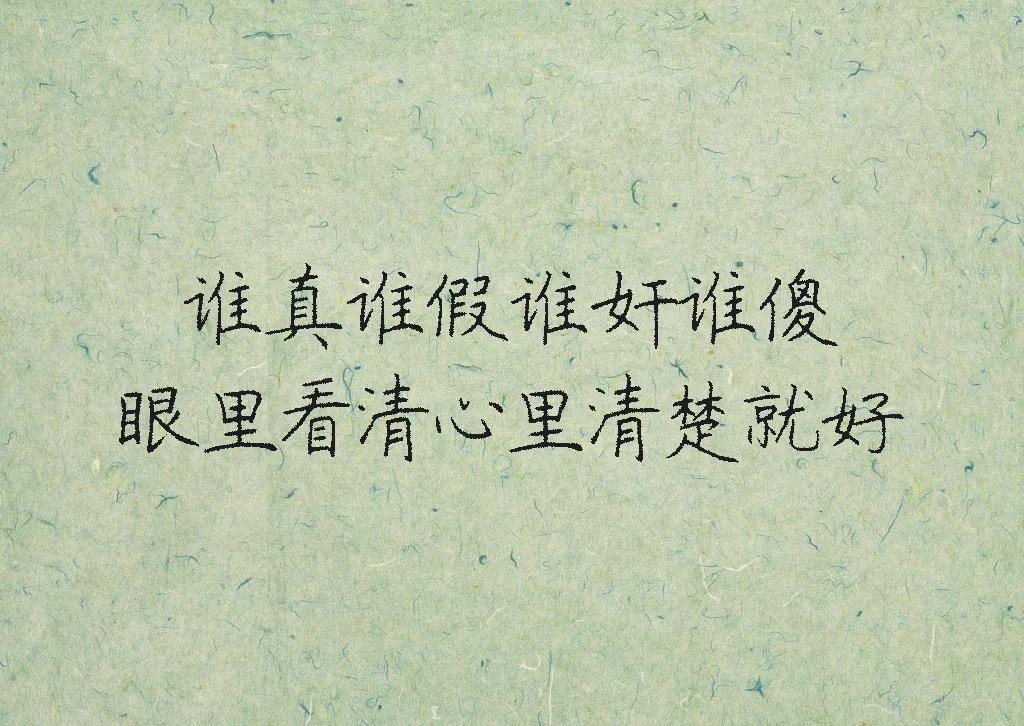 谁真谁假谁奸谁傻
眼里看清心里清楚就好